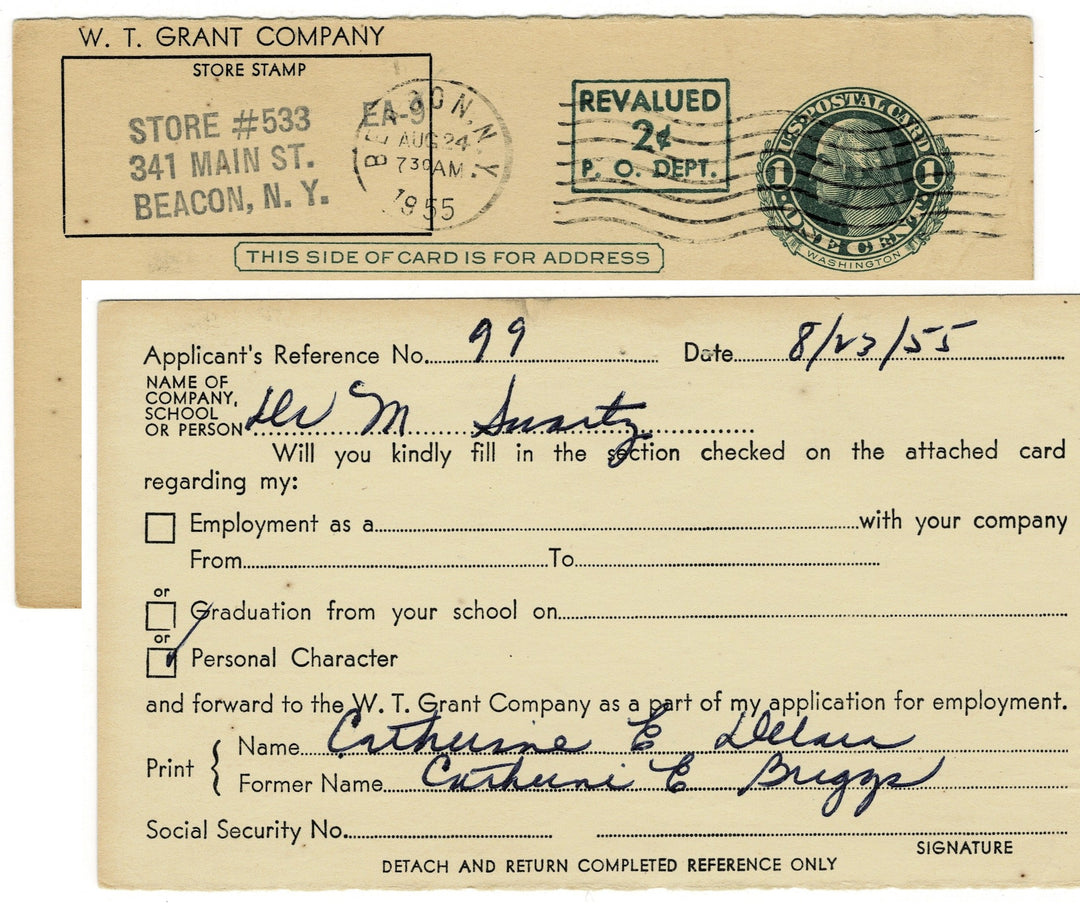 W. T. GRANT COMPANY
STORE STAMP
STORE #533 EA-9
341 MAIN ST.
BEACON, N. Y.
BEACON, N.Y.
AUG 24
7 30 AM
1955
REVALUED
2¢
P. O. DEPT.
U.S. POSTAL CARD
1 1
ONE CENT
WASHINGTON
THIS SIDE OF CARD IS FOR ADDRESS
Applicant's Reference No. 99 Date 8/23/55
NAME OF
COMPANY,
SCHOOL
OR PERSON Dr M Swartz
Will you kindly fill in the section checked on the attached card
regarding my:
Employment as a with your company
From To
or
Graduation from your school on
or
Personal Character
and forward to the W. T. Grant Company as a part of my application for employment.
Print Name Catherine E
Former Name Catherine E Briggs
Social Security No.
SIGNATURE
DETACH AND RETURN COMPLETED REFERENCE ONLY